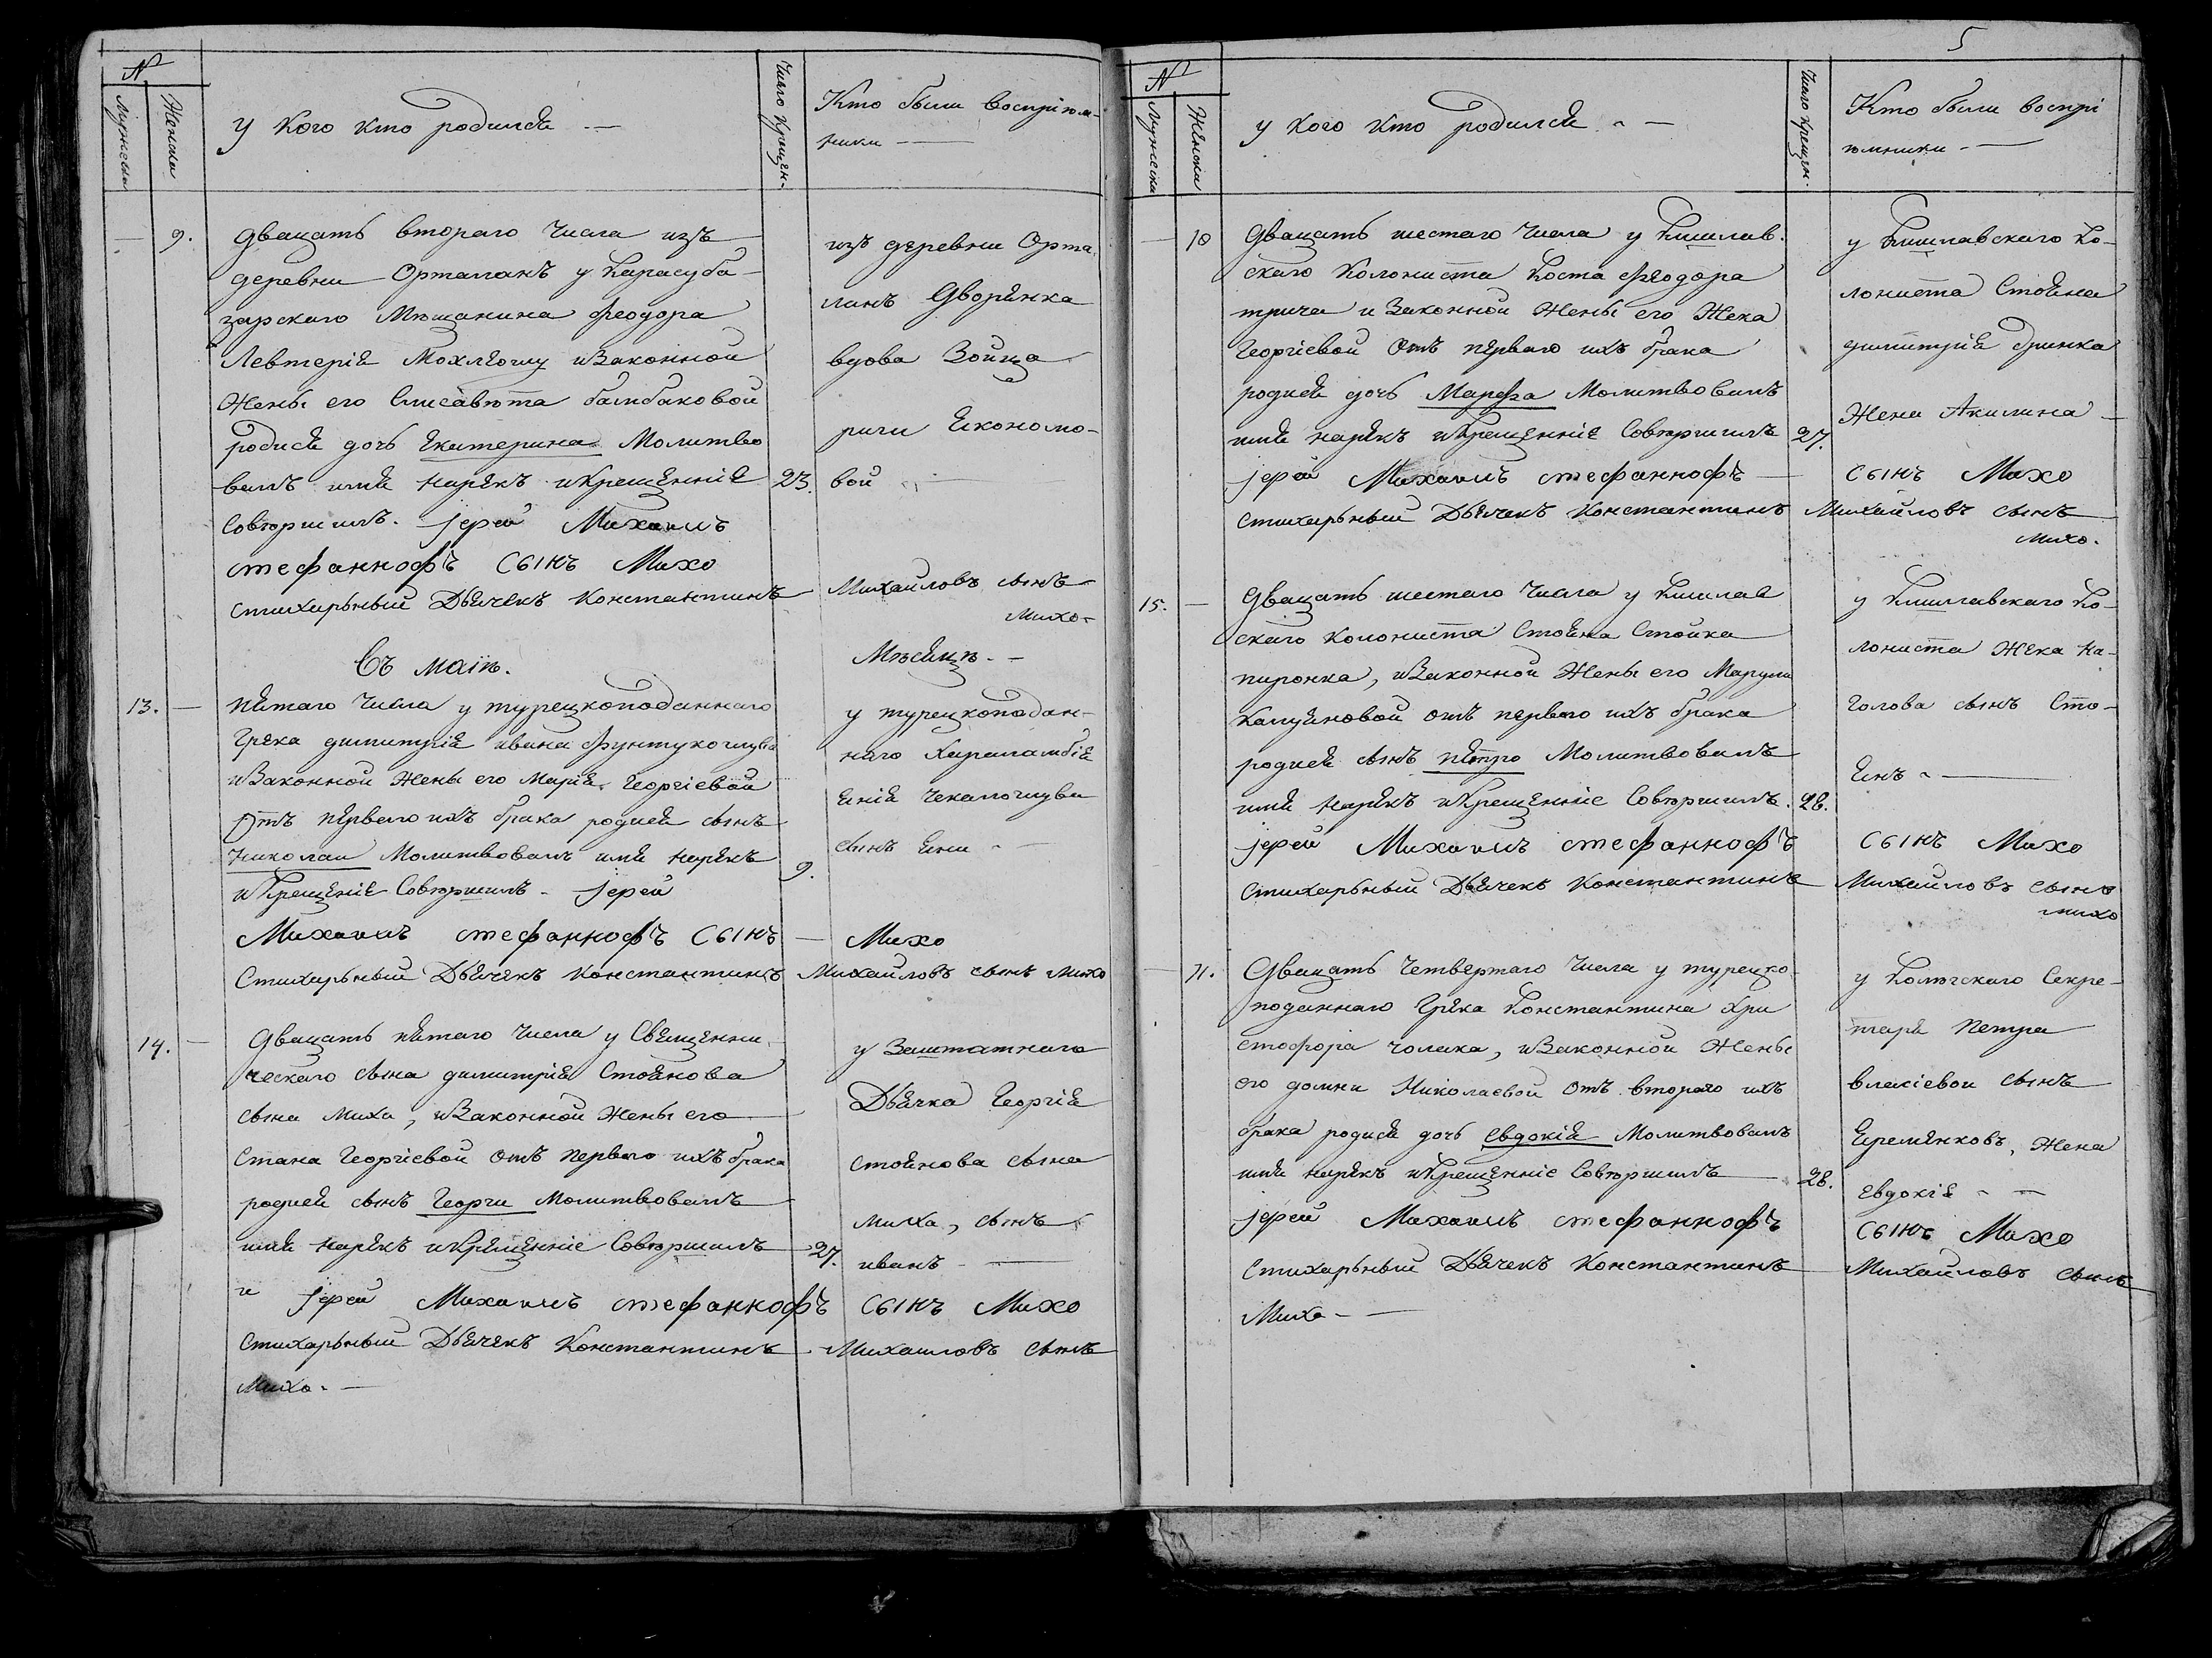 №
Мужеска
Женска
У кого кто родился
Число крещен.
Кто были воспріем-
ники
9.
Двацать втораго числа изъ
деревни Орталанъ у Карасуба-
зарскаго Мѣщанина Феодора
Левтерія Мохлѣоглу и Законной
Жены его Елисавѣта Балибаковой
родися дочь Екатерина Молитво
валъ имя нарекъ и Крещенніе 23.
Совершилъ. Іерей Михаилъ
стефаннофъ Сынъ Михо
Стихарьный Дьячекъ Константинъ
изъ деревни Орта
ланъ Дворянка
вдова Зоица
рали Економо-
вой
Михайловъ сынъ
Михо
Въ маіи. Мѣсяцѣ.
13.
Пятаго числа у турецкоподаннаго
Грека Димитрія Ивана Фунтукоглува
и Законной Жены его Марія Георгіевой
Отъ перваго ихъ брака родися сынъ
Николаи Молитвовалъ имя нарекъ 9.
и Крещеніе Совершилъ. Іерей
Михаилъ стефаннофъ Сынъ Михо
Стихарьный Дьячекъ Константинъ Михайловъ сынъ Михо
у турецкоподан-
наго Харалампія
Енія Чекалоглува
сынъ Ени
14.
Двацать пятаго числа у Священни-
ческаго сына Димитрія Стоянова
сына Миха, и Законной Жены его
Стана Георгіевой Отъ перваго ихъ брака
родися сынъ Георги Молитвовалъ
имя нарекъ и Крещенніе Совершилъ 27.
и Іерей Михаилъ стефаннофъ Сынъ Михо
Стихарьный Дьячекъ Константинъ Михаиловъ сынъ
Михо.
у Заштатнаго
Дьячка Георгія
Стоянова сына
Миха, сынъ
иванъ
5
№
Мужеска
Женска
У кого кто родился
Число крещен.
Кто были воспрі
ѣмники
10
Двацать шестаго числа у Кишлав-
скаго Колониста Коста Феодора
трича и Законной Жены его Жека
Георгіевой Отъ перваго ихъ брака
родися дочь Марфа Молитвовалъ
имя нарекъ и Крещенніе Совершилъ 27.
Іерей Михаилъ стефаннофъ Сынъ Михо
Стихарьный Дьячекъ Константинъ Михайловъ сынъ
Михо.
у Кишлавскаго Ко-
лониста Стояна
Димитрія Дринка
Жена Акилина
15.
Двацать шестаго числа у Кишлав
скаго колониста Стояна Стойка
пиронка, и Законной Жены его Марули
Калуяновой отъ перваго ихъ брака
родися сынъ пѣтро Молитвовалъ
имя нарекъ и Крещенніе Совершилъ. 28.
Іерей Михаилъ стефаннофъ Сынъ Михо
Стихарьный Дьячекъ Константинъ Михайловъ сынъ
Михо
у Кишлавскаго Ко-
лониста Жека Ка-
голова сынъ Сто-
янъ
11.
Двацать четвертаго числа у турецко-
поданнаго Грека Константина Хри
стофора чолака, и Законной Жены
его Домни Николаевой Отъ втораго ихъ
брака родися дочь Евдокія Молитвовалъ
имя нарекъ и Крещенніе Совершилъ 28.
Іерей Михаилъ стефаннофъ Сынъ Михо
Стихарьный Дьячекъ Константинъ Михайловъ Сынъ
Михо
у Колѣчскаго Секре-
таря Петра
власіевои сынъ
Еремянковъ, Жена
Евдокія